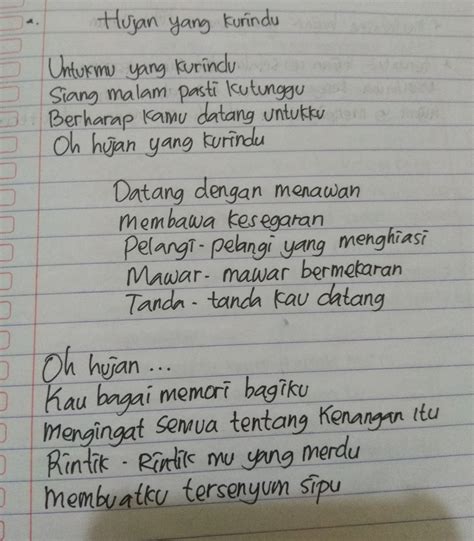 a. Hujan yang kurindu
Untukmu yang kurindu
Siang malam pasti kutunggu
Berharap kamu datang untukku
Oh hujan yang kurindu
Datang dengan menawan
membawa kesegaran
Pelangi - pelangi yang menghiasi
Mawar - mawar bermekaran
Tanda - tanda kau datang
Oh hujan ...
Kau bagai memori bagiku
mengingat semua tentang kenangan itu
Rintik - Rintik mu yang merdu
membuatku tersenyum sipu